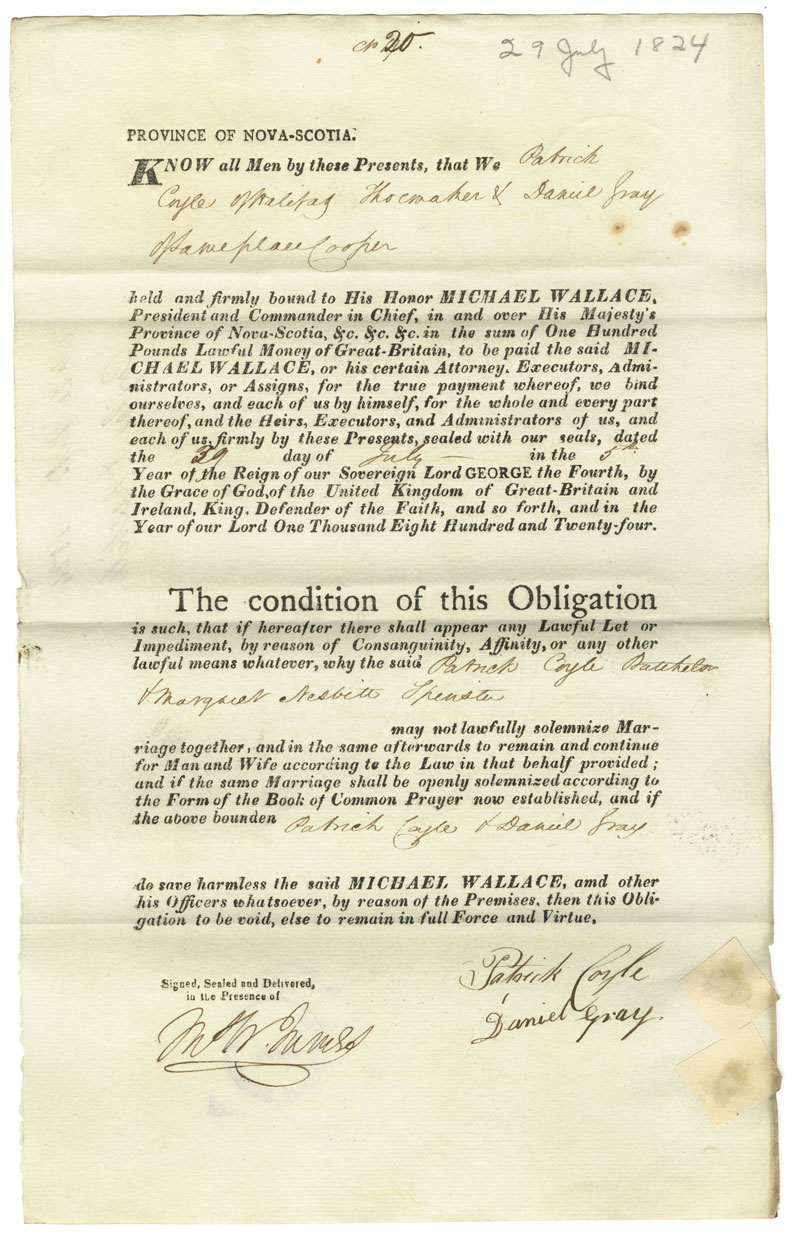 No 20.
29 July 1824
PROVINCE OF NOVA-SCOTIA.
KNOW all Men by these Presents, that We Patrick
Coyle of Halifax Shoemaker & Daniel Gray
of same place Cooper
held and firmly bound to His Honor MICHAEL WALLACE,
President and Commander in Chief, in and over His Majesty's
Province of Nova-Scotia, &c. &c. &c. in the sum of One Hundred
Pounds Lawful Money of Great-Britain, to be paid the said MI-
CHAEL WALLACE, or his certain Attorney, Executors, Admi-
nistrators, or Assigns, for the true payment whereof, we bind
ourselves, and each of us by himself, for the whole and every part
thereof, and the Heirs, Executors, and Administrators of us, and
each of us, firmly by these Presents, sealed with our seals, dated
the 29 day of July — in the 5th
Year of the Reign of our Sovereign Lord GEORGE the Fourth, by
the Grace of God, of the United Kingdom of Great-Britain and
Ireland, King, Defender of the Faith, and so forth, and in the
Year of our Lord One Thousand Eight Hundred and Twenty-four.
The condition of this Obligation
is such, that if hereafter there shall appear any Lawful Let or
Impediment, by reason of Consanguinity, Affinity, or any other
lawful means whatever, why the said Patrick Coyle Batchelor
& Margaret Nesbitt Spinster
may not lawfully solemnize Mar-
riage together, and in the same afterwards to remain and continue
for Man and Wife according to the Law in that behalf provided;
and if the same Marriage shall be openly solemnized according to
the Form of the Book of Common Prayer now established, and if
the above bounden Patrick Coyle & Daniel Gray
do save harmless the said MICHAEL WALLACE, amd other
his Officers whatsoever, by reason of the Premises, then this Obli-
gation to be void, else to remain in full Force and Virtue.
Patrick Coyle
Daniel Gray
Signed, Sealed and Delivered,
in the Presence of